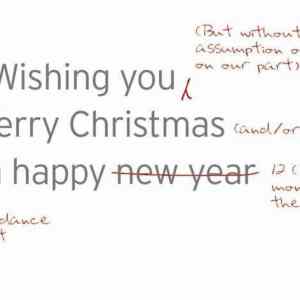 (But without
assumption o
on our part)
Wishing you
erry Christmas (and/or
happy new year 12 (
mon
the
dance
t